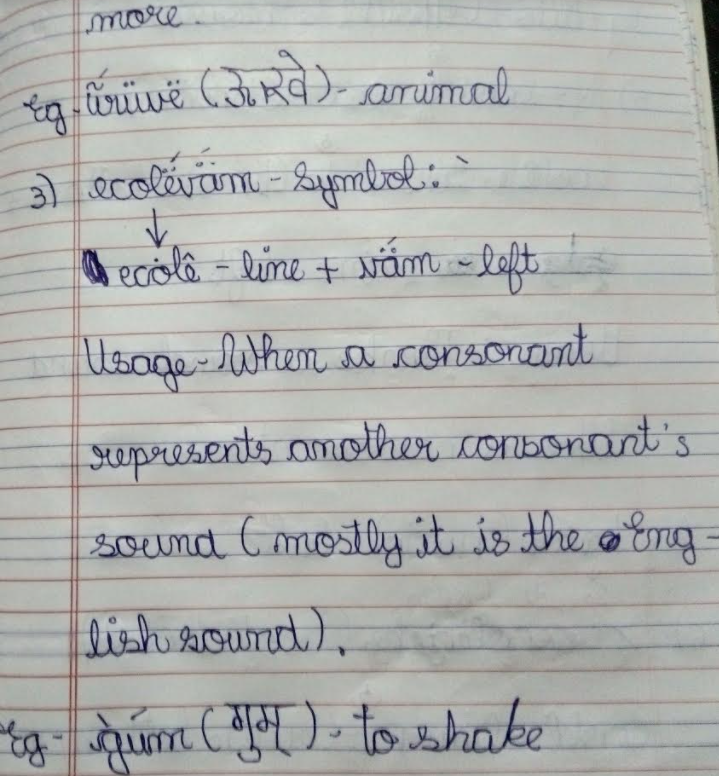 more.
Eg- ű̈rüwë (ऊरवे)- animal
3) ecolévä́m - Symbol: `
↓
ecolê - line + vä́m - left
Usage- When a consonant
represents another consonant's
sound (mostly it is the Eng-
lish sound).
Eg- g̀úm (गुम) - to shake